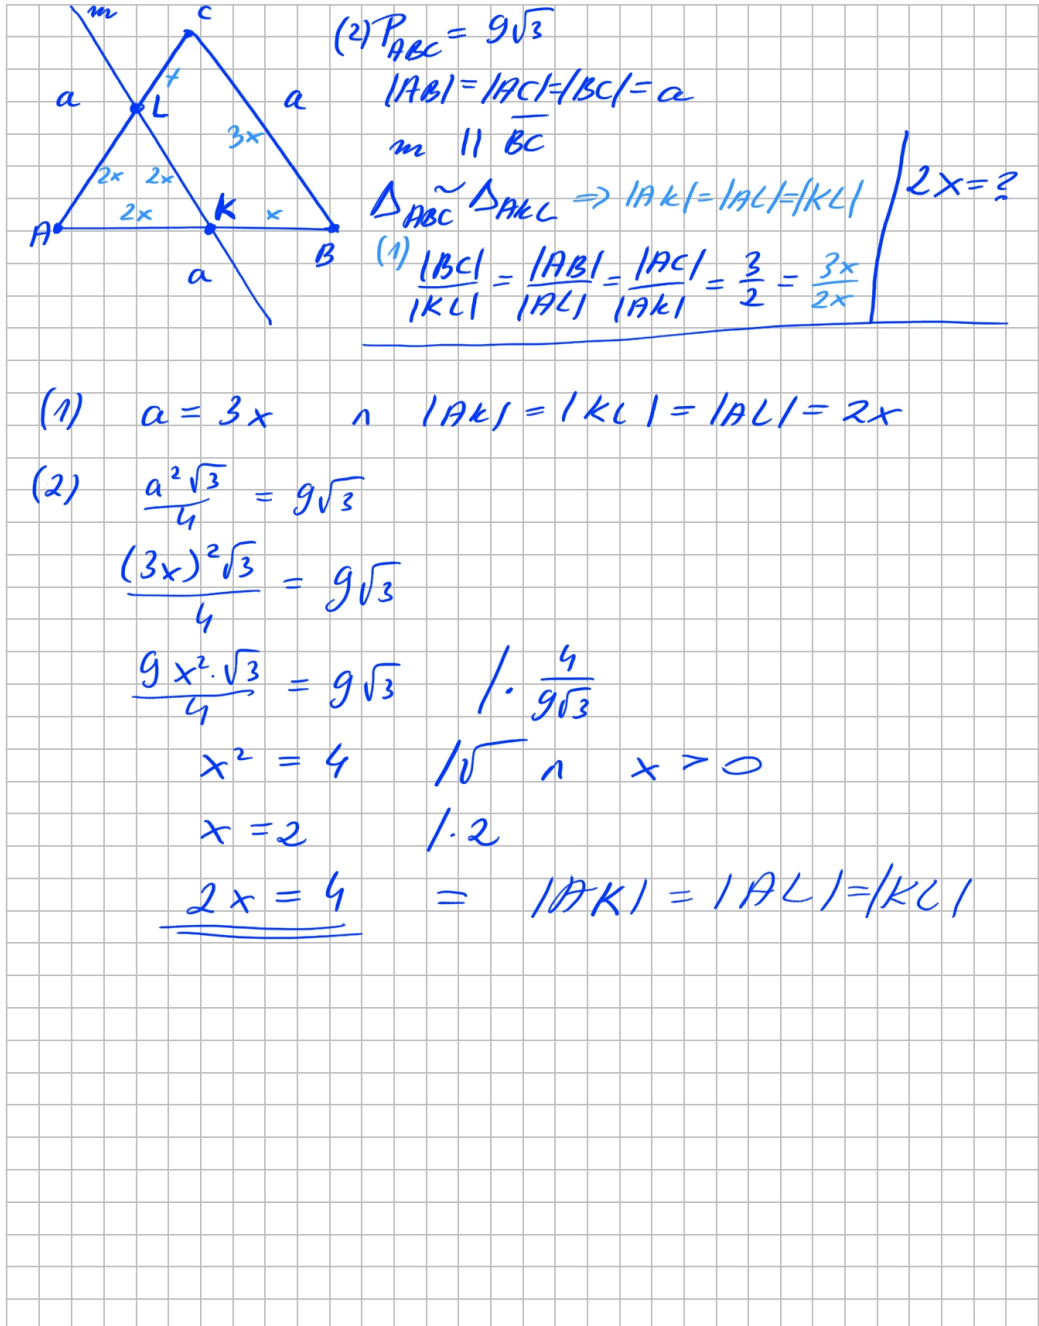 m
C
a
L
x
a
3x
2x 2x
2x
K
x
A
B
a
(2) P_ABC = 9√3
|AB| = |AC| = |BC| = a
m || BC
Δ_ABC ~ Δ_AKL ⇒ |AK| = |AL| = |KL|
(1) |BC|/|KL| = |AB|/|AL| = |AC|/|AK| = 3/2 = 3x/2x
2x = ?
(1) a = 3x ∧ |AK| = |KL| = |AL| = 2x
(2) a²√3/4 = 9√3
(3x)²√3/4 = 9√3
9x²·√3/4 = 9√3 /· 4/9√3
x² = 4 /√ ∧ x > 0
x = 2 /· 2
2x = 4 = |AK| = |AL| = |KL|